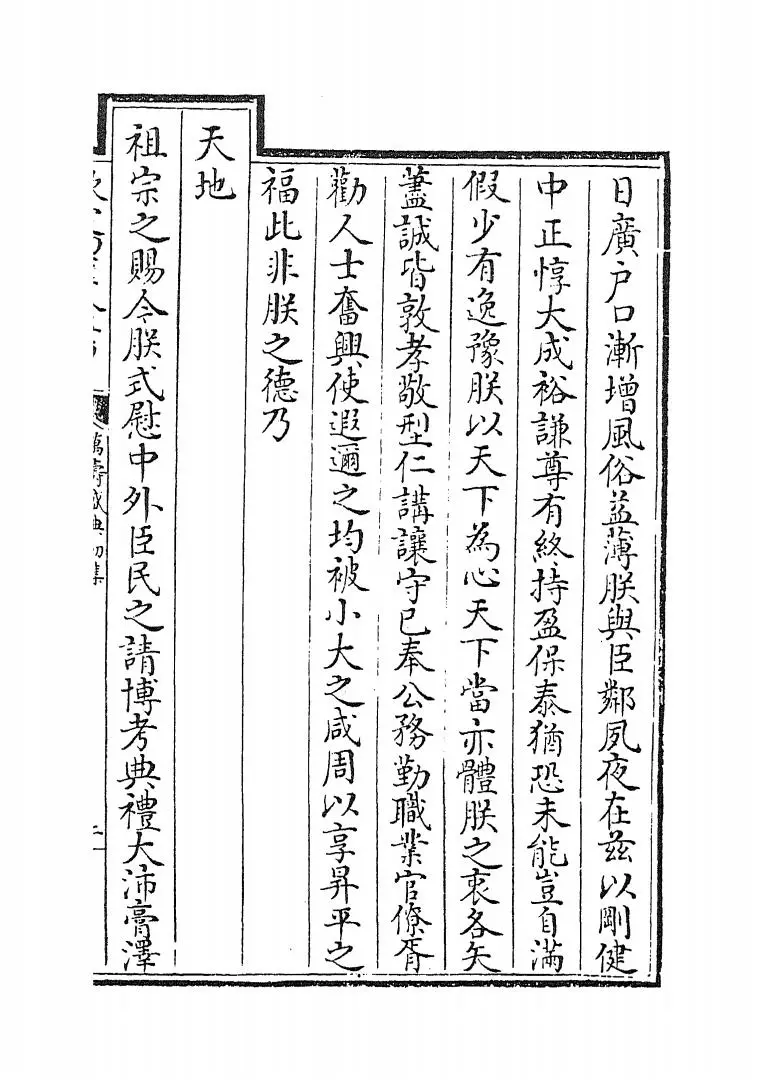 日廣户口漸增風俗益薄朕與臣鄰夙夜在兹以剛健
中正惇大成裕謙尊有終持盈保泰猶恐未能豈自滿
假少有逸豫朕以天下為心天下當亦體朕之衷各矢
藎誠皆敦孝敬型仁講讓守已奉公務勤職業官僚胥
勸人士奮興使遐邇之均被小大之咸周以享昇平之
福此非朕之德乃
天地
祖宗之賜今朕式慰中外臣民之請博考典禮大沛膏澤
萬壽盛典初集